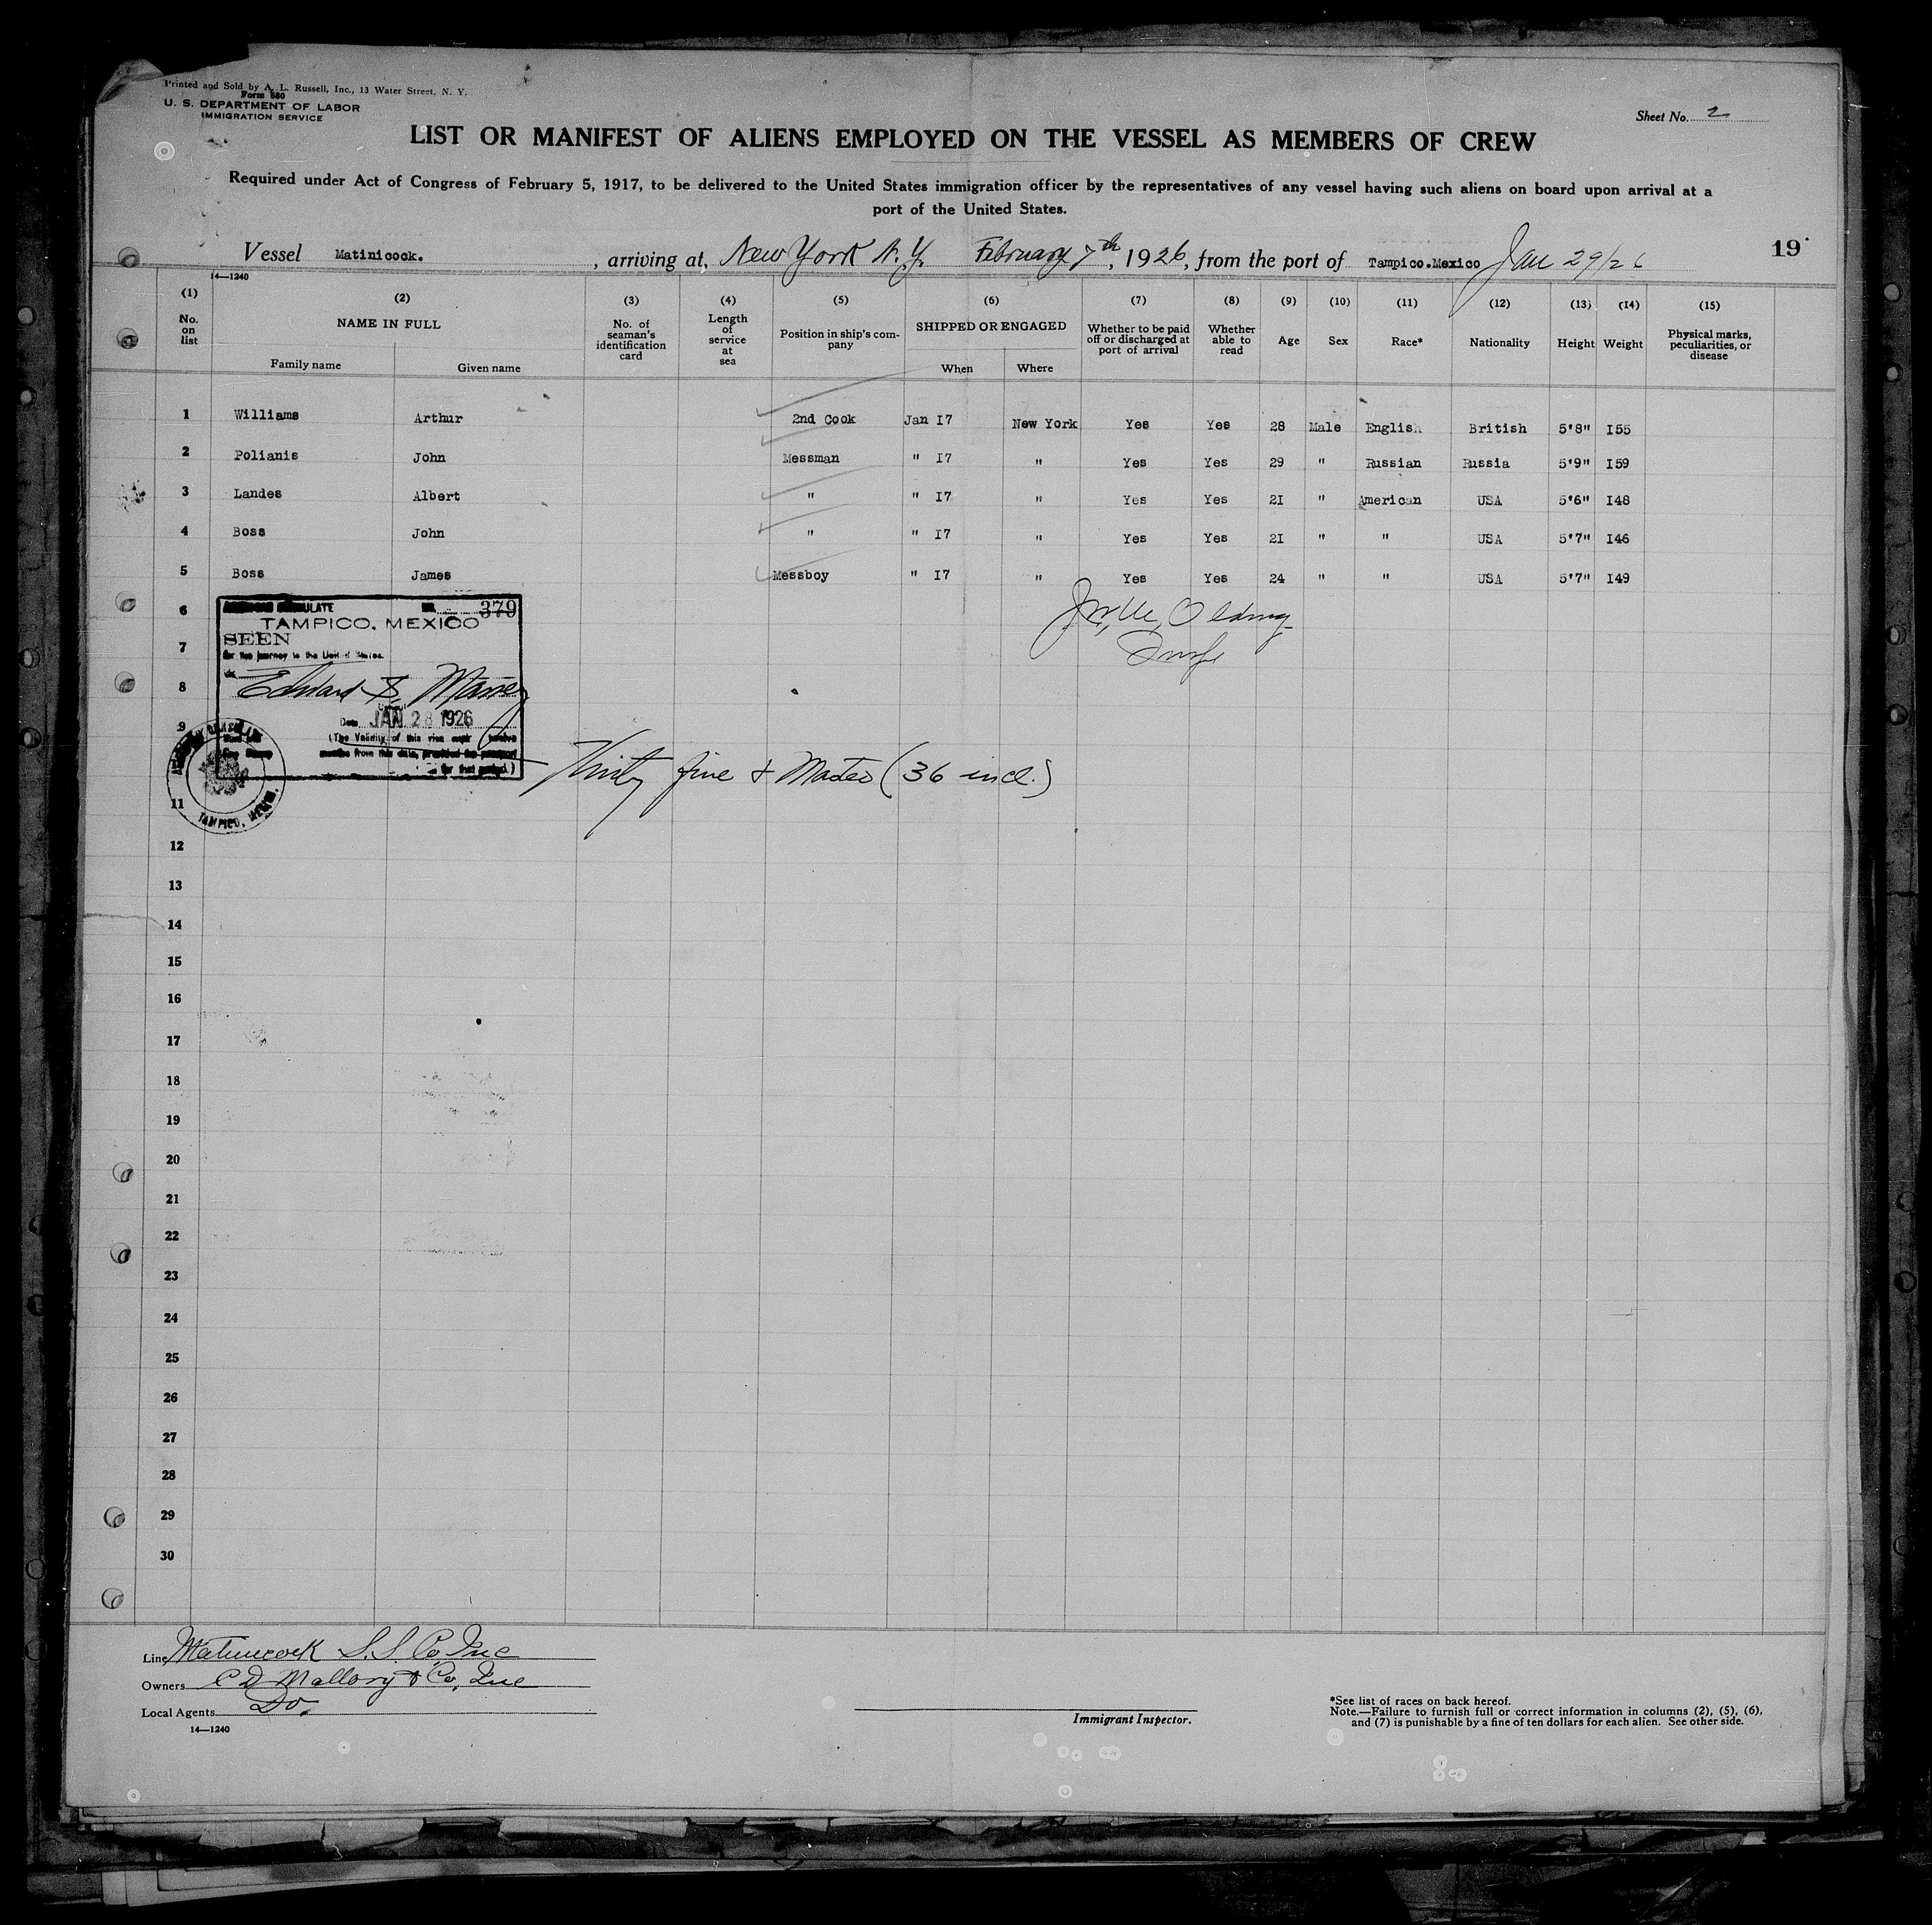 Printed and Sold by A. L. Russell, Inc., 13 Water Street, N. Y.
Form 680
U. S. DEPARTMENT OF LABOR
IMMIGRATION SERVICE
Sheet No. 2
LIST OR MANIFEST OF ALIENS EMPLOYED ON THE VESSEL AS MEMBERS OF CREW
Required under Act of Congress of February 5, 1917, to be delivered to the United States immigration officer by the representatives of any vessel having such aliens on board upon arrival at a
port of the United States.
Vessel Matinicock. , arriving at, New York N.Y. February 7th, 1926, from the port of Tampico.Mexico Jan 29/26 19
14—1240
(1) No. on list
(2) NAME IN FULL Family name Given name
(3) No. of seaman's identification card
(4) Length of service at sea
(5) Position in ship's company
(6) SHIPPED OR ENGAGED When Where
(7) Whether to be paid off or discharged at port of arrival
(8) Whether able to read
(9) Age
(10) Sex
(11) Race*
(12) Nationality
(13) Height
(14) Weight
(15) Physical marks, peculiarities, or disease
1 Williams Arthur 2nd Cook Jan I7 New York Yes Yes 28 Male English British 5'8" I55
2 Polianis John Messman " I7 " Yes Yes 29 " Russian Russia 5'9" I59
3 Landes Albert " " I7 " Yes Yes 2I " American USA 5'6" I48
4 Boss John " " I7 " Yes Yes 2I " " USA 5'7" I46
5 Boss James Messboy " I7 " Yes Yes 24 " " USA 5'7" I49
6
379
TAMPICO, MEXICO
SEEN
7
for the journey to the United States.
8
Edward S.
9
Date JAN 28 1926
(The Validity of this visa
months from this date, provided the passport
for that period.)
Thirty five & Master (36 incl.)
11
TAMPICO, MEXICO.
12
13
14
15
16
17
18
19
20
21
22
23
24
25
26
27
28
29
30
Line Matinicock S.S. Co, Inc
Owners C D Mallory & Co, Inc
Local Agents Do.
14—1240
Immigrant Inspector.
*See list of races on back hereof.
Note.—Failure to furnish full or correct information in columns (2), (5), (6),
and (7) is punishable by a fine of ten dollars for each alien. See other side.